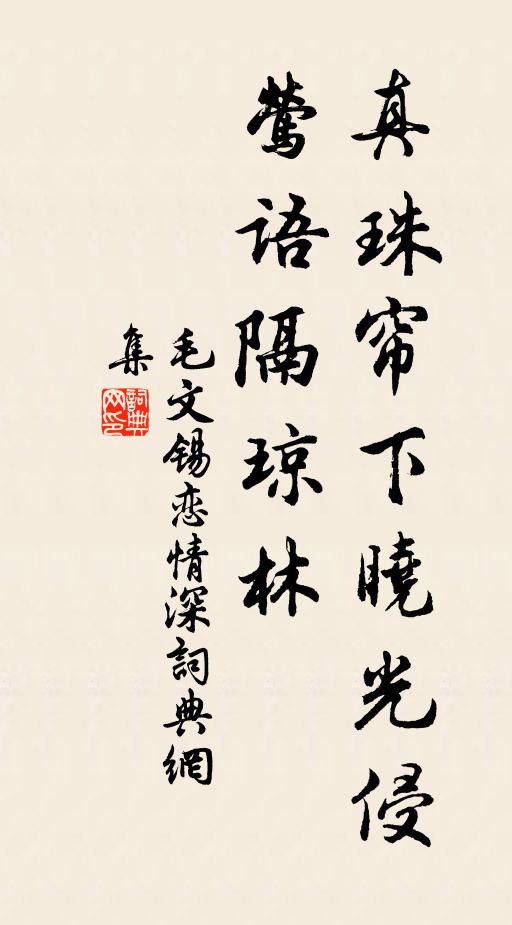 真珠帘下曉光侵
鶯語隔琼林
毛文锡恋情深詞典網
集
詞典網印